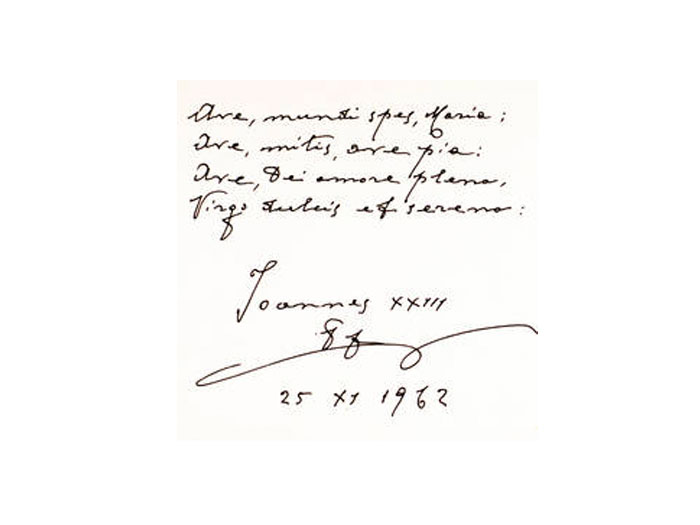 Ave, mundi spes, Maria;
Ave, mitis, ave pia:
Ave, Dei amore plena,
Virgo dulcis et serena:
Joannes XXIII
25 XI 1962